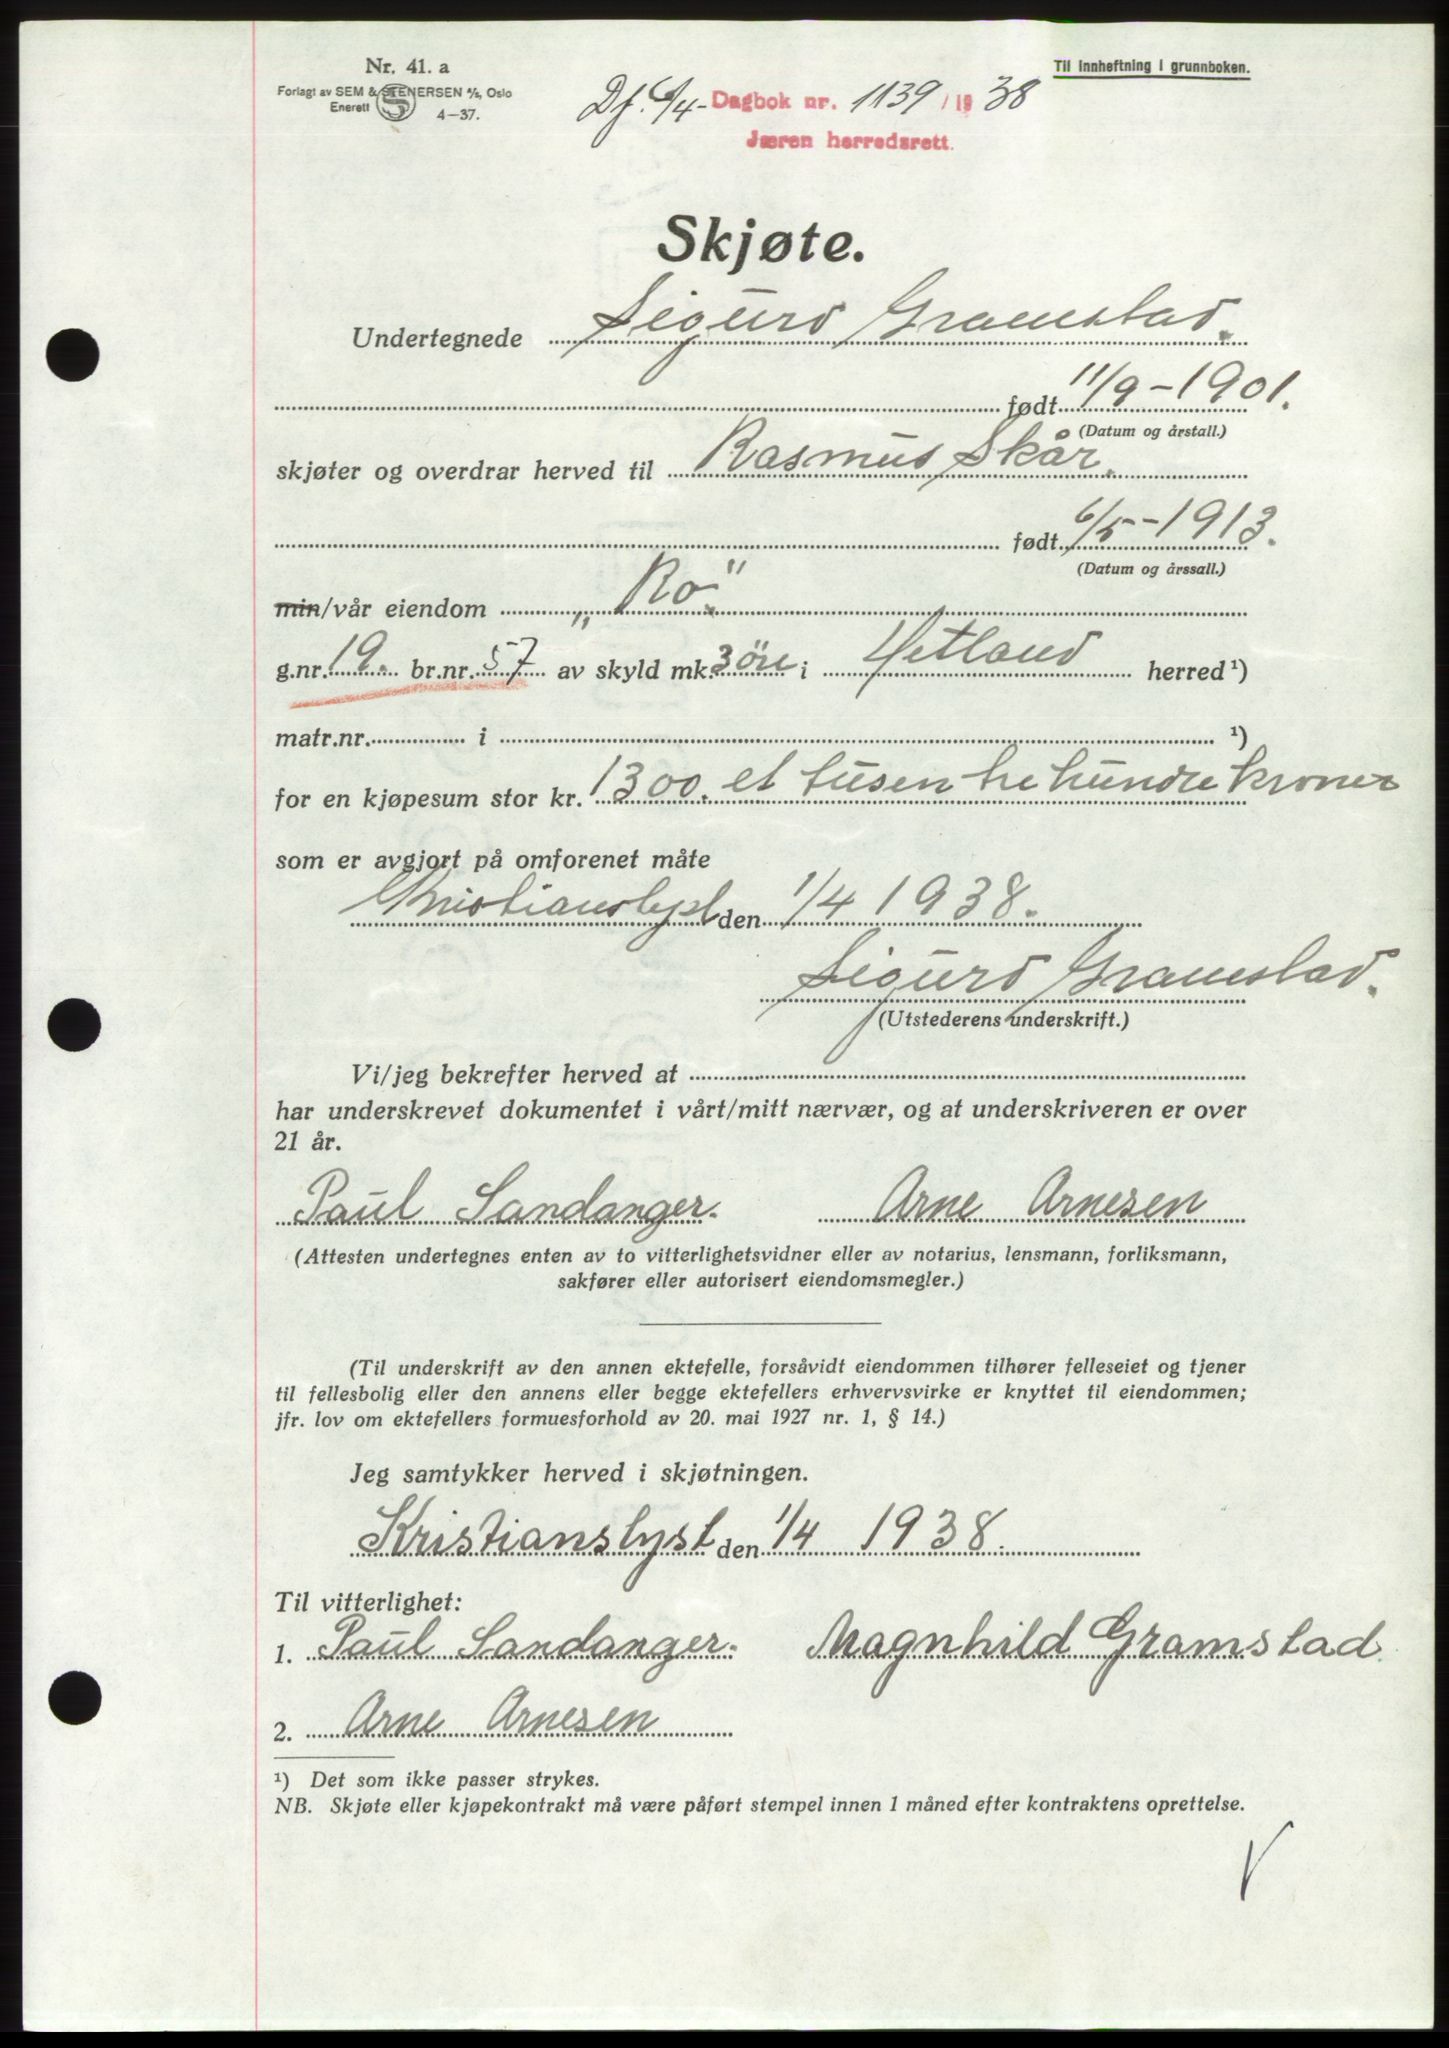 Nr. 41. a
Til innheftning i grunnboken.
Forlagt av SEM & STENERSEN A/S, Oslo
Enerett
4-37.
Df. 6/4- Dagbok nr. 1139 / 1938
Jæren herredsrett.
Skjøte.
Undertegnede Sigurd Gramstad.
født 11/9-1901.
(Datum og årstall.)
skjøter og overdrar herved til Rasmus Skår.
født 6/5-1913.
(Datum og årssall.)
min/vår eiendom „Ro."
g.nr. 19. br.nr. 57 av skyld mk. 3 öre i Hetland herred¹)
matr.nr. i ¹)
for en kjøpesum stor kr. 1300. et tusen tre hundre kroner
som er avgjort på omforenet måte
Kristianslyst den 1/4 1938.
Sigurd Gramstad.
(Utstederens underskrift.)
Vi/jeg bekrefter herved at
har underskrevet dokumentet i vårt/mitt nærvær, og at underskriveren er over
21 år.
Paul Sandanger. Arne Arnesen
(Attesten undertegnes enten av to vitterlighetsvidner eller av notarius, lensmann, forliksmann,
sakfører eller autorisert eiendomsmegler.)
(Til underskrift av den annen ektefelle, forsåvidt eiendommen tilhører felleseiet og tjener
til fellesbolig eller den annens eller begge ektefellers erhvervsvirke er knyttet til eiendommen;
jfr. lov om ektefellers formuesforhold av 20. mai 1927 nr. 1, § 14.)
Jeg samtykker herved i skjøtningen.
Kristianslyst den 1/4 1938.
Til vitterlighet:
1. Paul Sandanger. Magnhild Gramstad
2. Arne Arnesen
¹) Det som ikke passer strykes.
NB. Skjøte eller kjøpekontrakt må være påført stempel innen 1 måned efter kontraktens oprettelse.